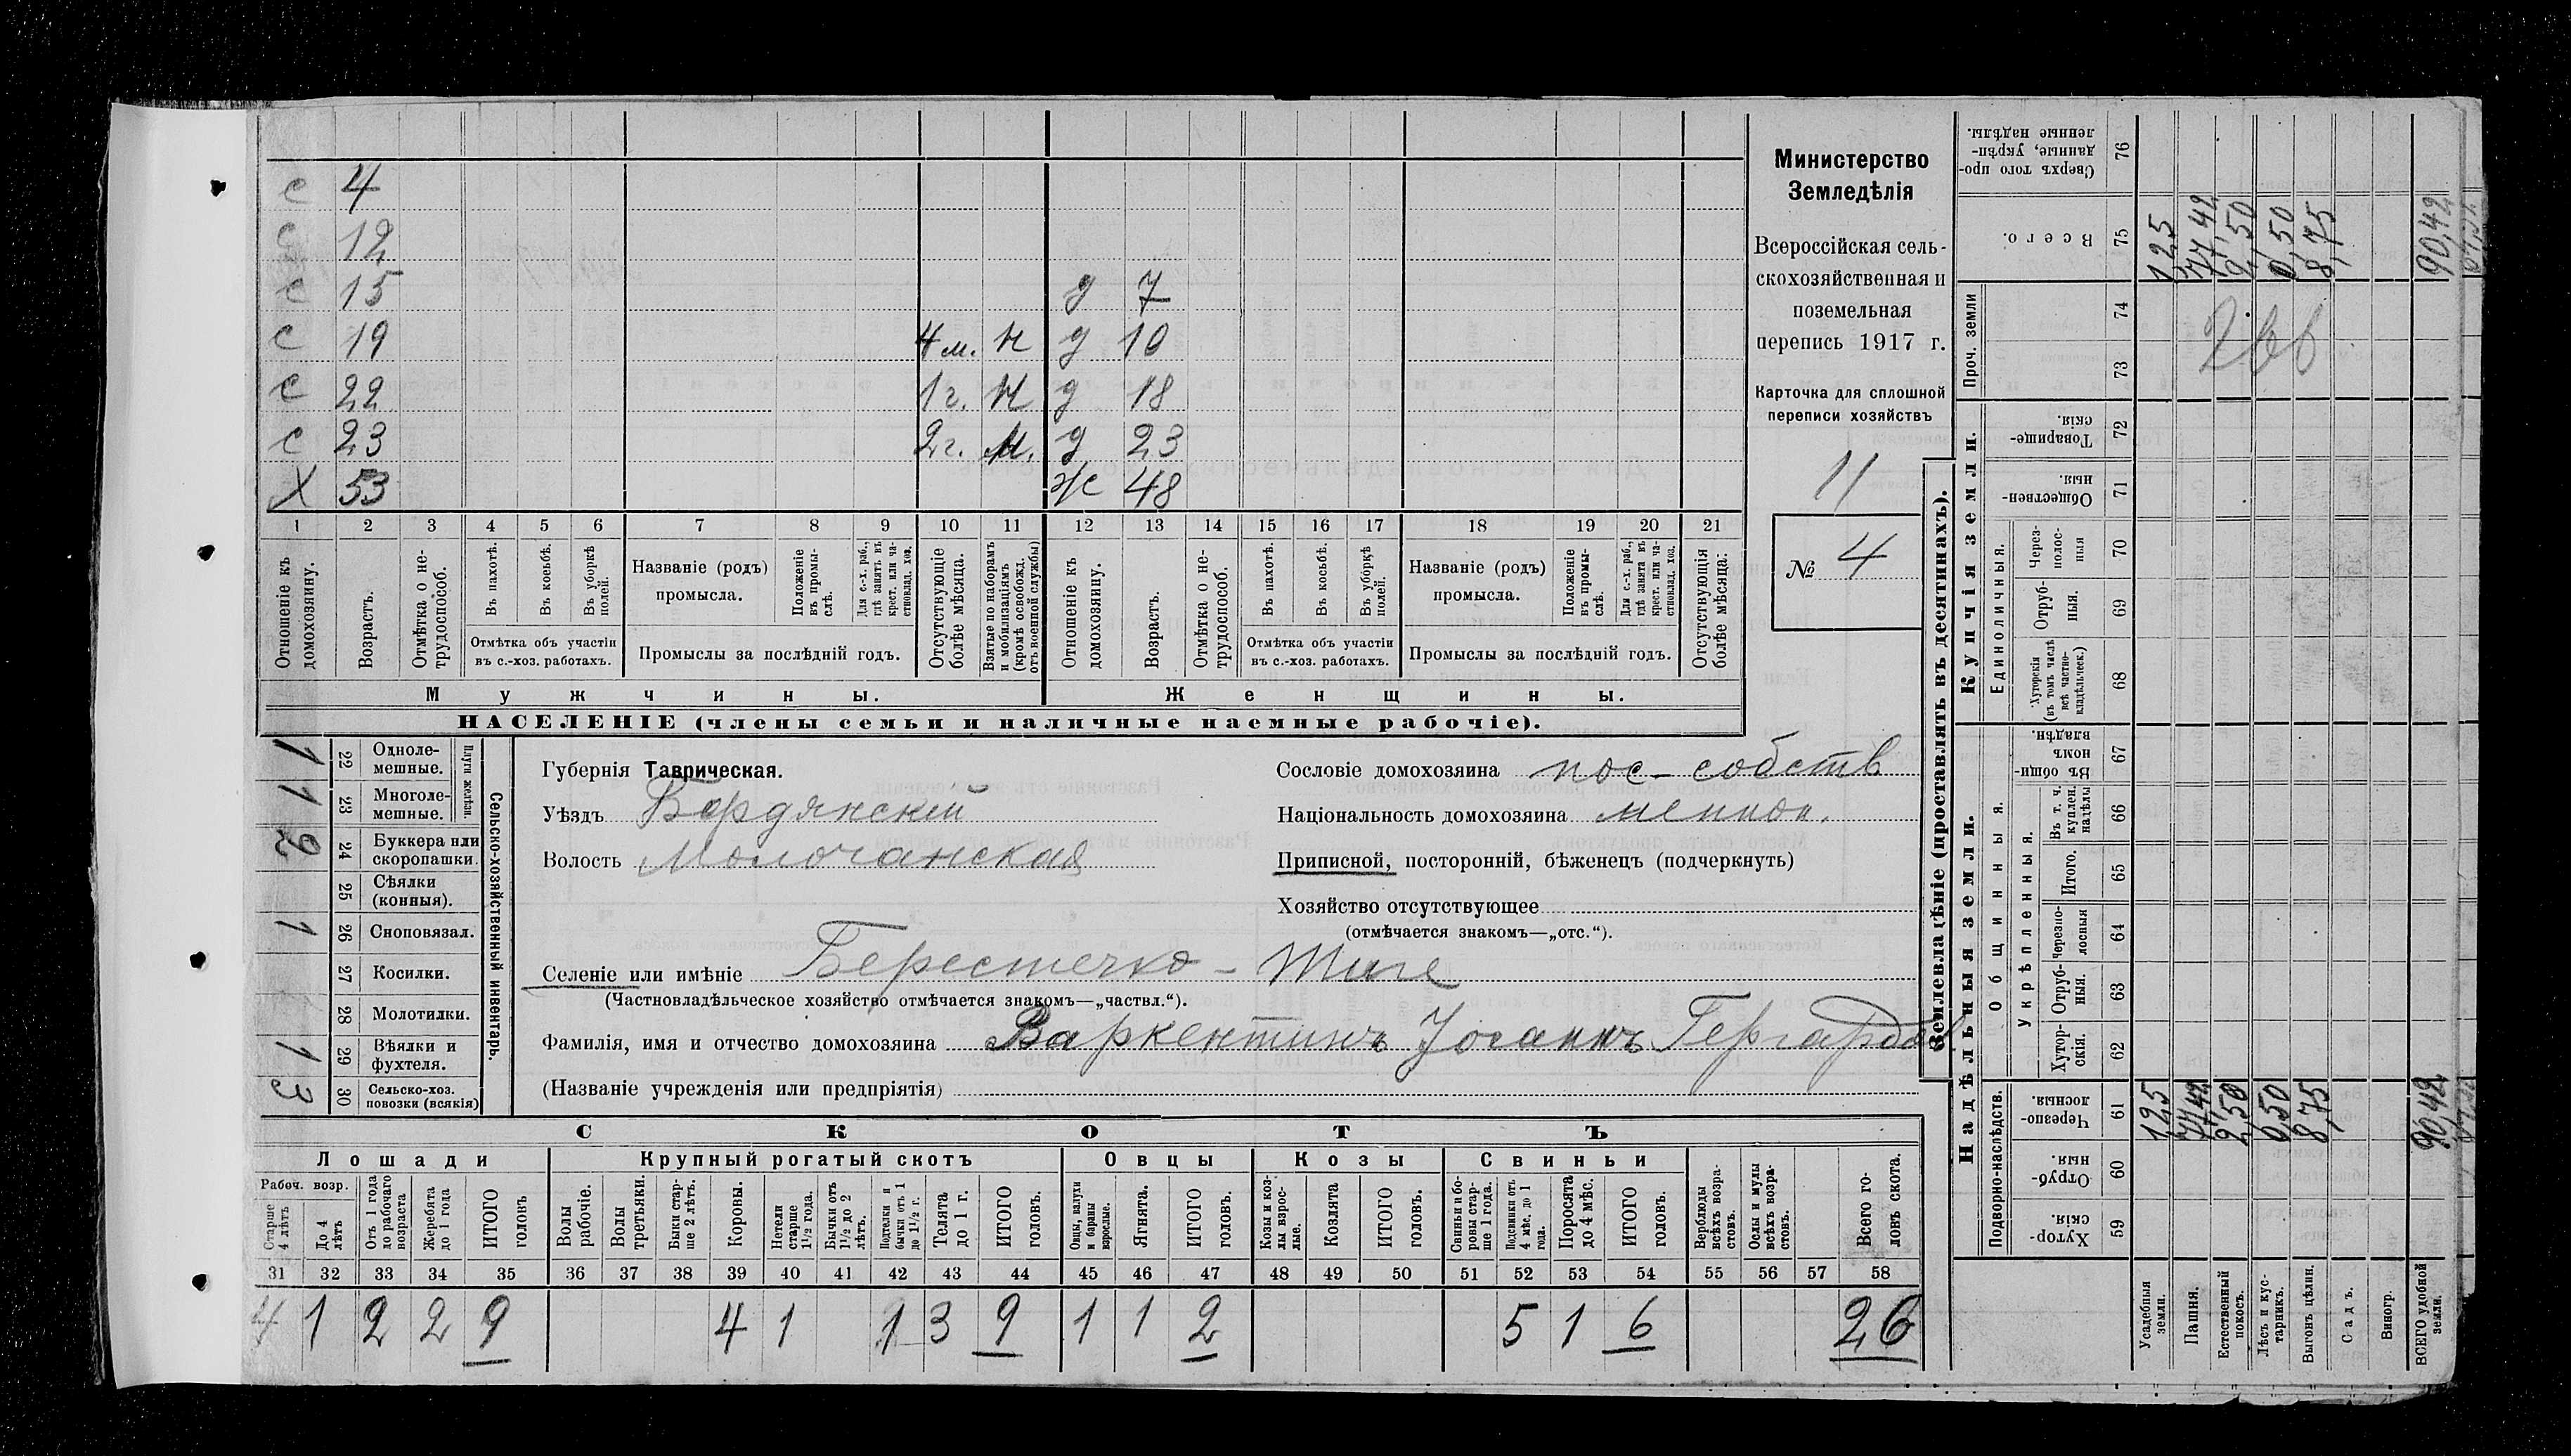 с 4
с 12
с 15 д 7
с 19 4 м. н д 10
с 22 1 г. н д 18
с 23 2 г. н. д 23
Х 53 ж 48
1 2 3 4 5 6 7 8 9 10 11 12 13 14 15 16 17 18 19 20 21
Отношеніе къ домохозяину.
Возрастъ.
Отмѣтка о не-
трудоспособ.
Въ пахотѣ.
Въ косьбѣ.
Въ уборкѣ полей.
Отмѣтка объ участіи
въ с.-хоз. работахъ.
Названіе (родъ)
промысла.
Положеніе въ промы-
слѣ.
Для с.-х. раб., гдѣ занятъ въ крест. или ча-
стновлад. хоз.
Промыслы за послѣдній годъ.
Отсутствующіе болѣе мѣсяца.
Взятые по наборамъ и мобилизаціямъ (кромѣ освобожд. отъ военной службы)
Отношеніе къ домохозяину.
Возрастъ.
Отмѣтка о не-
трудоспособ.
Въ пахотѣ.
Въ косьбѣ.
Въ уборкѣ полей.
Отмѣтка объ участіи
въ с.-хоз. работахъ.
Названіе (родъ)
промысла.
Положеніе въ промы-
слѣ.
Для с.-х. раб., гдѣ занята въ крест. или ча-
стновлад. хоз.
Промыслы за послѣдній годъ.
Отсутствующія болѣе мѣсяца:
Мужчины.
Женщины.
НАСЕЛЕНІЕ (члены семьи и наличные наемные рабочіе).
Министерство
Земледѣлія
Всероссійская сель-
скохозяйственная и
поземельная
перепись 1917 г.
Карточка для сплошной
переписи хозяйствъ
11
№ 4
1 22 Одноле-
мешные.
1 23 Многоле-
мешные.
Плуги желѣзн.
2 24 Буккера или
скоропашки.
25 Сѣялки
(конныя).
1 26 Сноповязал.
27 Косилки.
28 Молотилки.
1 29 Вѣялки и
фухтеля.
3 30 Сельско-хоз.
повозки (всякія)
Сельско-хозяйственный инвентарь.
Губернія Таврическая.
Уѣздъ Бердянскій
Волость Молочанская
Сословіе домохозяина пос-собств
Національность домохозяина меннон.
Приписной, посторонній, бѣженецъ (подчеркнуть)
Хозяйство отсутствующее
(отмѣчается знакомъ—„отс.“).
Селеніе или имѣніе Берестечко - Тиге
(Частновладѣльческое хозяйство отмѣчается знакомъ—„частвл.“).
Фамилія, имя и отчество домохозяина Варкентинъ Іоганнъ Гергардов
(Названіе учрежденія или предпріятія)
СКОТЪ
Лошади
Крупный рогатый скотъ
Овцы
Козы
Свиньи
Рабоч. возр.
Старше 4 лѣтъ
До 4 лѣтъ
Отъ 1 года до рабочаго возраста
Жеребята до 1 года
ИТОГО головъ
Волы рабочіе.
Волы третьяки.
Быки стар-
ше 2 лѣтъ.
Коровы.
Нетели старше 1½ года.
Бычки отъ 1½ до 2 лѣтъ.
Подтелки и бычки отъ 1 до 1½ г.
Телята до 1 г.
ИТОГО головъ.
Овцы, валухи и бараны взрослые.
Ягнята.
ИТОГО головъ.
Козы и коз-
лы взрос-
лые.
Козлята
ИТОГО головъ.
Свиньи и бо-
ровы стар-
ше 1 года.
Подсвинки отъ 4 мѣс. до 1 года.
Поросята до 4 мѣс.
ИТОГО головъ.
Верблюды всѣхъ возра-
стовъ.
Ослы и мулы всѣхъ возра-
стовъ.
Всего го-
ловъ скота.
31 32 33 34 35 36 37 38 39 40 41 42 43 44 45 46 47 48 49 50 51 52 53 54 55 56 57 58
4 1 2 2 9 4 1 1 3 9 1 1 2 5 1 6 26
Землевладѣніе (проставлять въ десятинахъ).
Надѣльныя земли.
Купчія земли.
Проч. земли
Подворно-наслѣдств.
Общинныя.
Укрѣпленныя.
Единоличныя.
Сверхъ того про-
данные, укрѣп-
ленные надѣлы. 76
Всего. 75 1,25 77,42 2,50 0,50 8,75 90,42
74
73
Товарище-
скія. 72
Обществен-
ныя. 71
Через-
полос-
ныя 70
Отруб-
ныя. 69
Хуторскія (въ томъ числѣ всѣ частно-
владѣльческ.) 68
Въ общин-
номъ владѣн. 67
Въ т. ч. куплен. надѣлы 66
Итого. 65
Черезпо-
лосныя 64
Отруб-
ныя. 63
Хутор-
скія. 62
Черезпо-
лосныя. 61 1,25 77,42 2,50 0,50 8,75 90,42
Отруб-
ныя. 60
Хутор-
скія. 59
Усадебныя земли.
Пашня.
Естественный покосъ.
Лѣсъ и кус-
тарникъ.
Выгонъ цѣлин.
Садъ.
Виногр.
ВСЕГО удобной земли.